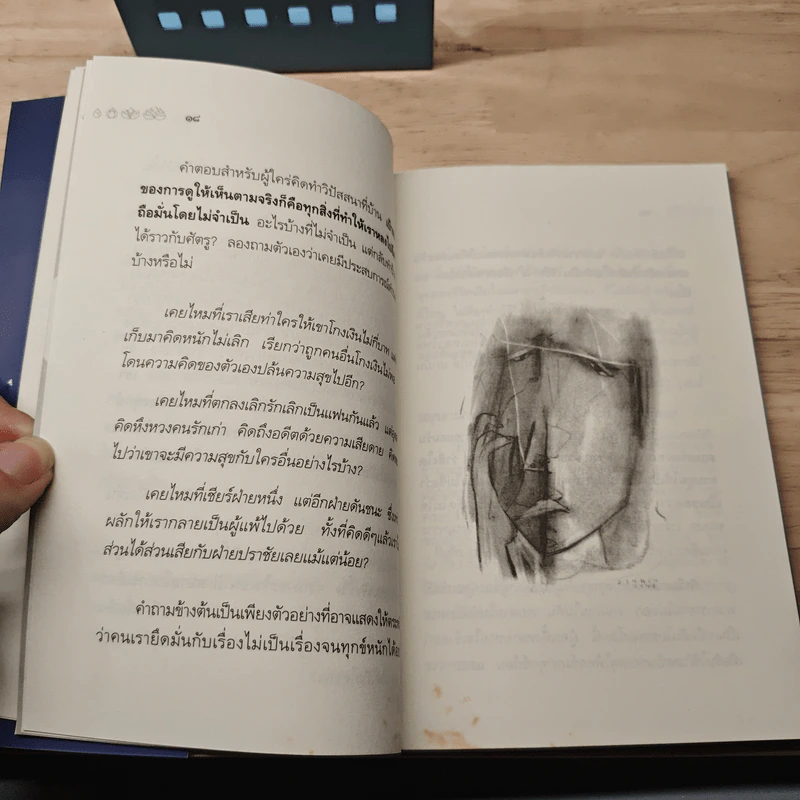 ๑๘
คำตอบสำหรับผู้ใคร่คิดทำวิปัสสนาที่บ้าน
ของการดูให้เห็นตามจริงก็คือทุกสิ่งที่ทำให้เรา
ถือมั่นโดยไม่จำเป็น อะไรบ้างที่ไม่จำเป็น แต่กลับ
ได้ราวกับศัตรู? ลองถามตัวเองว่าเคยมีประสบการณ์
บ้างหรือไม่
เคยไหมที่เราเสียท่าใครให้เขาโกงเงินไม่กี่บาท
เก็บมาคิดหนักไม่เลิก เรียกว่าถูกคนอื่นโกงเงินไม่
โดนความคิดของตัวเองปล้นความสุขไปอีก?
เคยไหมที่ตกลงเลิกรักเลิกเป็นแฟนกันแล้ว
คิดหึงหวงคนรักเก่า คิดถึงอดีตด้วยความเสียดาย
ไปว่าเขาจะมีความสุขกับใครอื่นอย่างไรบ้าง?
เคยไหมที่เชียร์ฝ่ายหนึ่ง แต่อีกฝ่ายดันชนะ
ผลักให้เรากลายเป็นผู้แพ้ไปด้วย ทั้งที่คิดดีๆแล้ว
ส่วนได้ส่วนเสียกับฝ่ายปราชัยเลยแม้แต่น้อย?
คำถามข้างต้นเป็นเพียงตัวอย่างที่อาจแสดงให้
ว่าคนเรายึดมั่นกับเรื่องไม่เป็นเรื่องจนทุกข์หนักได้